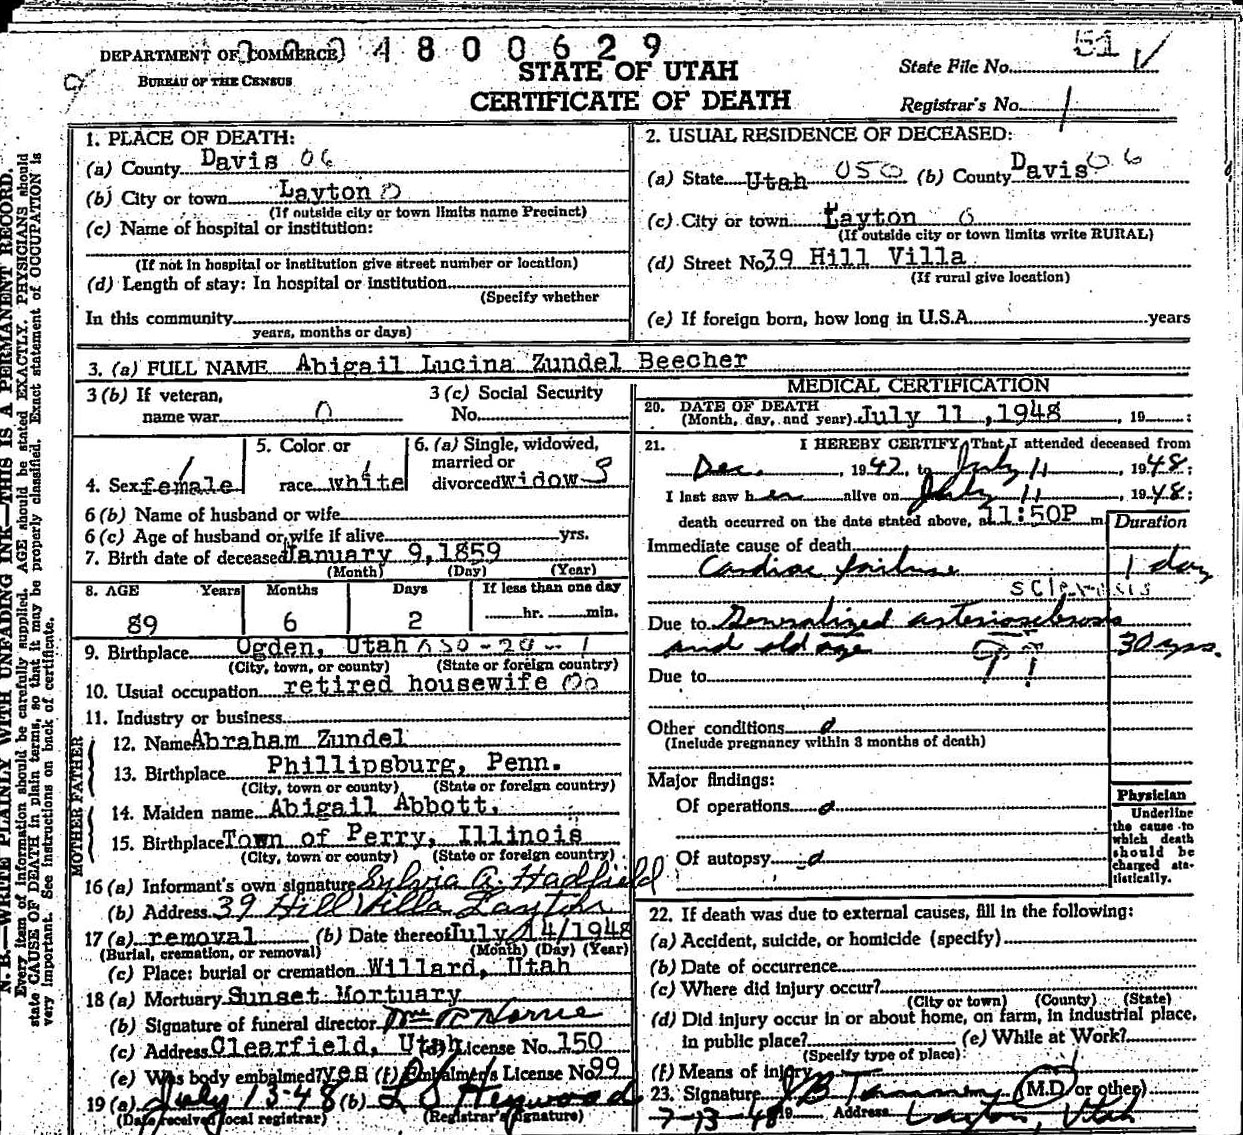 DEPARTMENT OF COMMERCE
4800629
51
BUREAU OF THE CENSUS
STATE OF UTAH
State File No.
CERTIFICATE OF DEATH
Registrar's No. 1
N. B.—WRITE PLAINLY WITH UNFADING INK—THIS IS A PERMANENT RECORD.
Every item of information should be carefully supplied. AGE should be stated EXACTLY. PHYSICIANS should
state CAUSE OF DEATH in plain terms, so that it may be properly classified. Exact statement of OCCUPATION is
very important. See instructions on back of certificate.
1. PLACE OF DEATH:
(a) County Davis 06
(b) City or town Layton 0
(If outside city or town limits name Precinct)
(c) Name of hospital or institution:
(If not in hospital or institution give street number or location)
(d) Length of stay: In hospital or institution
(Specify whether
In this community
years, months or days)
2. USUAL RESIDENCE OF DECEASED:
(a) State Utah 050 (b) County Davis 06
(c) City or town Layton 0
(If outside city or town limits write RURAL)
(d) Street No 39 Hill Villa
(If rural give location)
(e) If foreign born, how long in U.S.A. years
3. (a) FULL NAME Abigail Lucina Zundel Beecher
3 (b) If veteran,
name war 0
3 (c) Social Security
No.
4. Sex female
5. Color or
race white
6. (a) Single, widowed,
married or
divorced widow 3
6 (b) Name of husband or wife
6 (c) Age of husband or wife if alive yrs.
7. Birth date of deceased January 9, 1859
(Month) (Day) (Year)
8. AGE Years Months Days If less than one day
89 6 2 hr. min.
9. Birthplace Ogden, Utah
(City, town, or county) (State or foreign country)
10. Usual occupation retired housewife
11. Industry or business
FATHER
12. Name Abraham Zundel
13. Birthplace Phillipsburg, Penn.
(City, town, or county) (State or foreign country)
MOTHER
14. Maiden name Abigail Abbott.
15. Birthplace Town of Perry, Illinois
(City, town or county) (State or foreign country)
16 (a) Informant's own signature Sylvia A. Hadfield
(b) Address 39 Hill Villa Layton
17 (a) removal (b) Date thereof July 14/1948
(Burial, cremation, or removal) (Month) (Day) (Year)
(c) Place: burial or cremation Willard, Utah
18 (a) Mortuary Sunset Mortuary
(b) Signature of funeral director
(c) Address Clearfield, Utah (d) License No. 150
(e) Was body embalmed? yes (f) Embalmer's License No. 99
19 (a) July 13-48 (b) L S Heywood
(Date received local registrar) (Registrar's signature)
MEDICAL CERTIFICATION
20. DATE OF DEATH
(Month, day, and year) July 11, 1948, 19 ;
21. I HEREBY CERTIFY, That I attended deceased from
Dec. , 1942, to July 11, 1948;
I last saw her alive on July 11, 1948;
death occurred on the date stated above, at 11:50P m
Duration
Immediate cause of death
Cardiac failure 1 day
sclerosis
Due to Generalized arteriosclerosis
and old age 30 yrs.
Due to
Other conditions 0
(Include pregnancy within 3 months of death)
Major findings:
Of operations 0
Of autopsy 0
Physician
Underline
the cause to
which death
should be
charged sta-
tistically.
22. If death was due to external causes, fill in the following:
(a) Accident, suicide, or homicide (specify)
(b) Date of occurrence
(c) Where did injury occur?
(City or town) (County) (State)
(d) Did injury occur in or about home, on farm, in industrial place,
in public place? (e) While at Work?
(Specify type of place)
(f) Means of injury
23. Signature (M.D. or other)
7-13-48 19 Address Layton, Utah